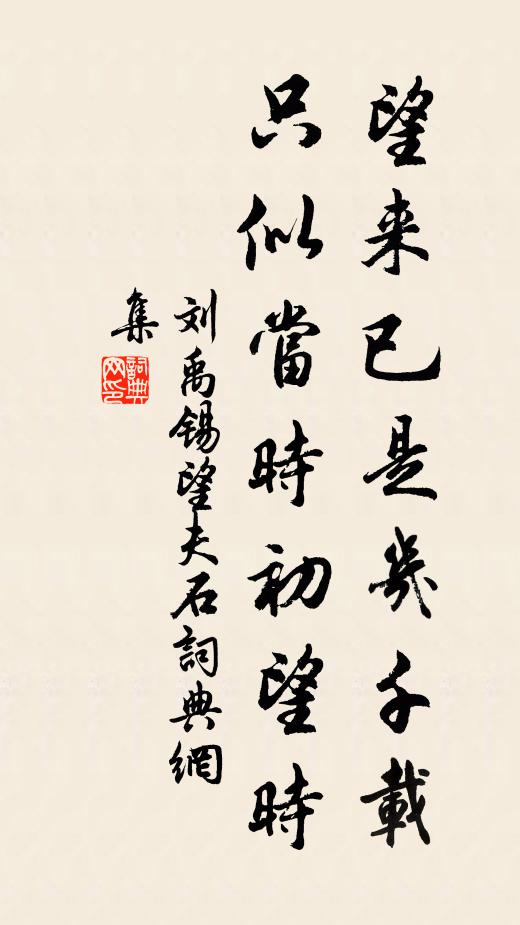 望来已是幾千載
只似當時初望時
刘禹锡望夫石詞典網
集
詞典网印